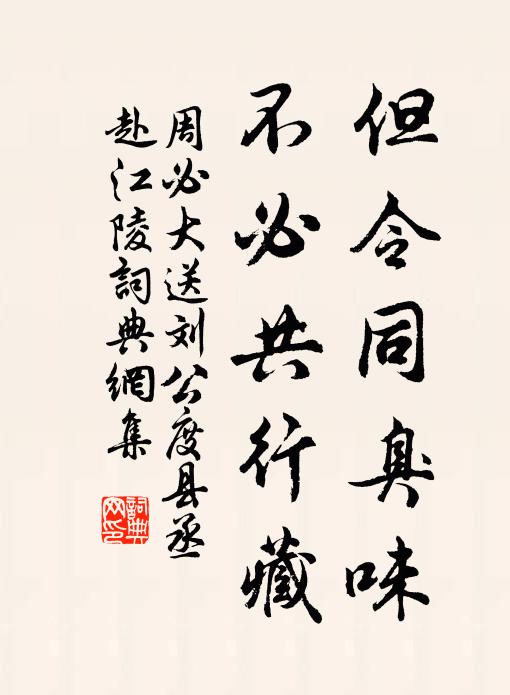 但令同臭味
不必共行藏
周必大送刘公度县丞
赴江陵詞典網集
詞典
网印